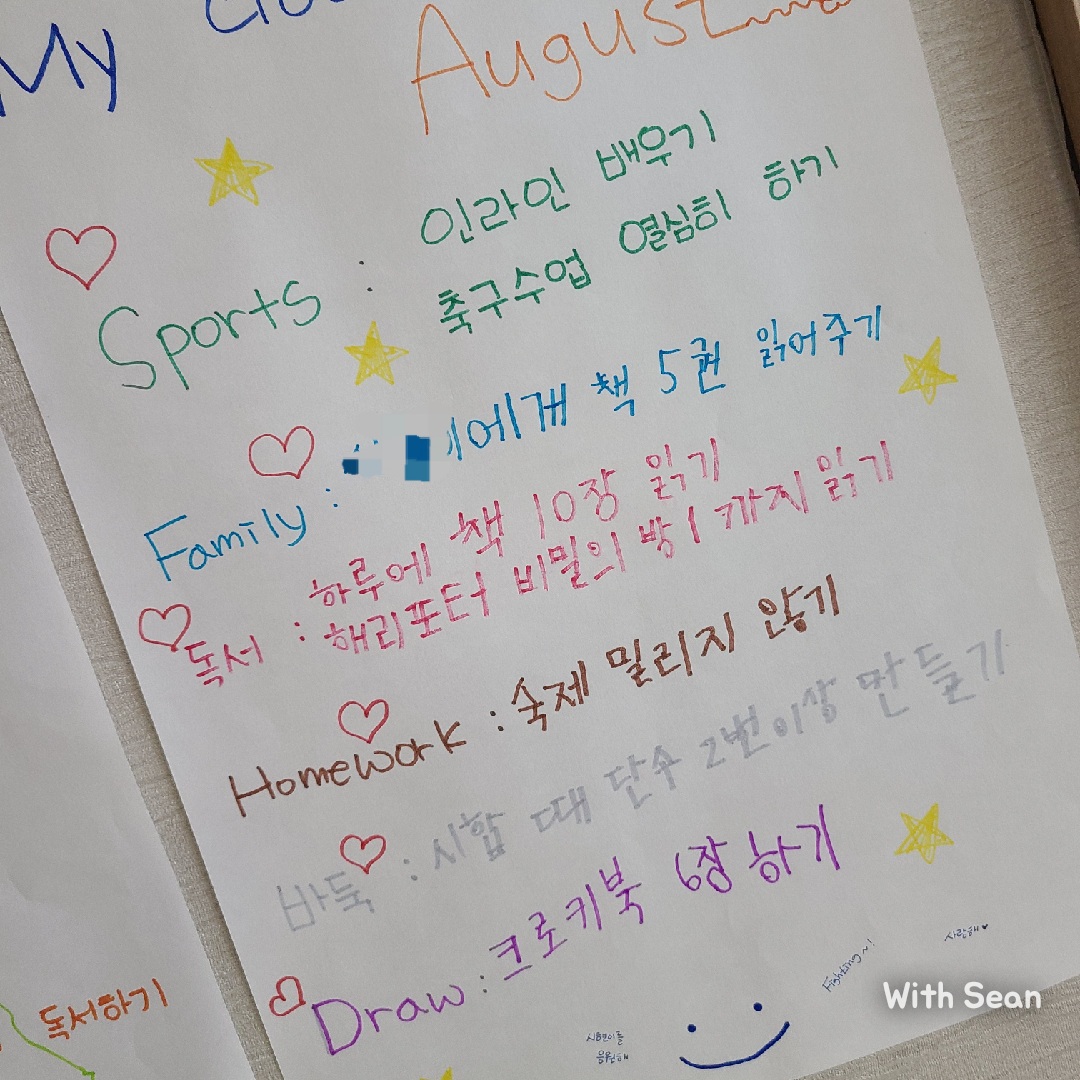 My
August
인라인 배우기
Sports : 축구수업 열심히 하기
Family : 에개 책 5권 읽어주기
하루에 책 10장 읽기
독서 : 해리포터 비밀의 방 1 까지 읽기
Homework : 숙제 밀리지 않기
바둑 : 시합 때 단수 2번이상 만들기
Draw : 크로키북 6장 하기
사랑해♥
Fighting~!
With Sean
독서하기
응원해